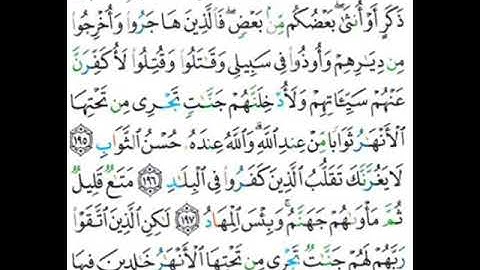 ذَكَرٍ أَوْ أُنثَىٰ ۖ بَعْضُكُم مِّنۢ بَعْضٍ ۖ فَٱلَّذِينَ هَاجَرُوا۟ وَأُخْرِجُوا۟
مِن دِيَـٰرِهِمْ وَأُوذُوا۟ فِى سَبِيلِى وَقَـٰتَلُوا۟ وَقُتِلُوا۟ لَأُكَفِّرَنَّ
عَنْهُمْ سَيِّـَٔاتِهِمْ وَلَأُدْخِلَنَّهُمْ جَنَّـٰتٍ تَجْرِى مِن تَحْتِهَا
ٱلْأَنْهَـٰرُ ثَوَابًا مِّنْ عِندِ ٱللَّهِ ۗ وَٱللَّهُ عِندَهُۥ حُسْنُ ٱلثَّوَابِ ١٩٥
لَا يَغُرَّنَّكَ تَقَلُّبُ ٱلَّذِينَ كَفَرُوا۟ فِى ٱلْبِلَـٰدِ ١٩٦ مَتَـٰعٌ قَلِيلٌ
ثُمَّ مَأْوَىٰهُمْ جَهَنَّمُ ۚ وَبِئْسَ ٱلْمِهَادُ ١٩٧ لَـٰكِنِ ٱلَّذِينَ ٱتَّقَوْا۟
رَبَّهُمْ لَهُمْ جَنَّـٰتٌ تَجْرِى مِن تَحْتِهَا ٱلْأَنْهَـٰرُ خَـٰلِدِينَ فِيهَا